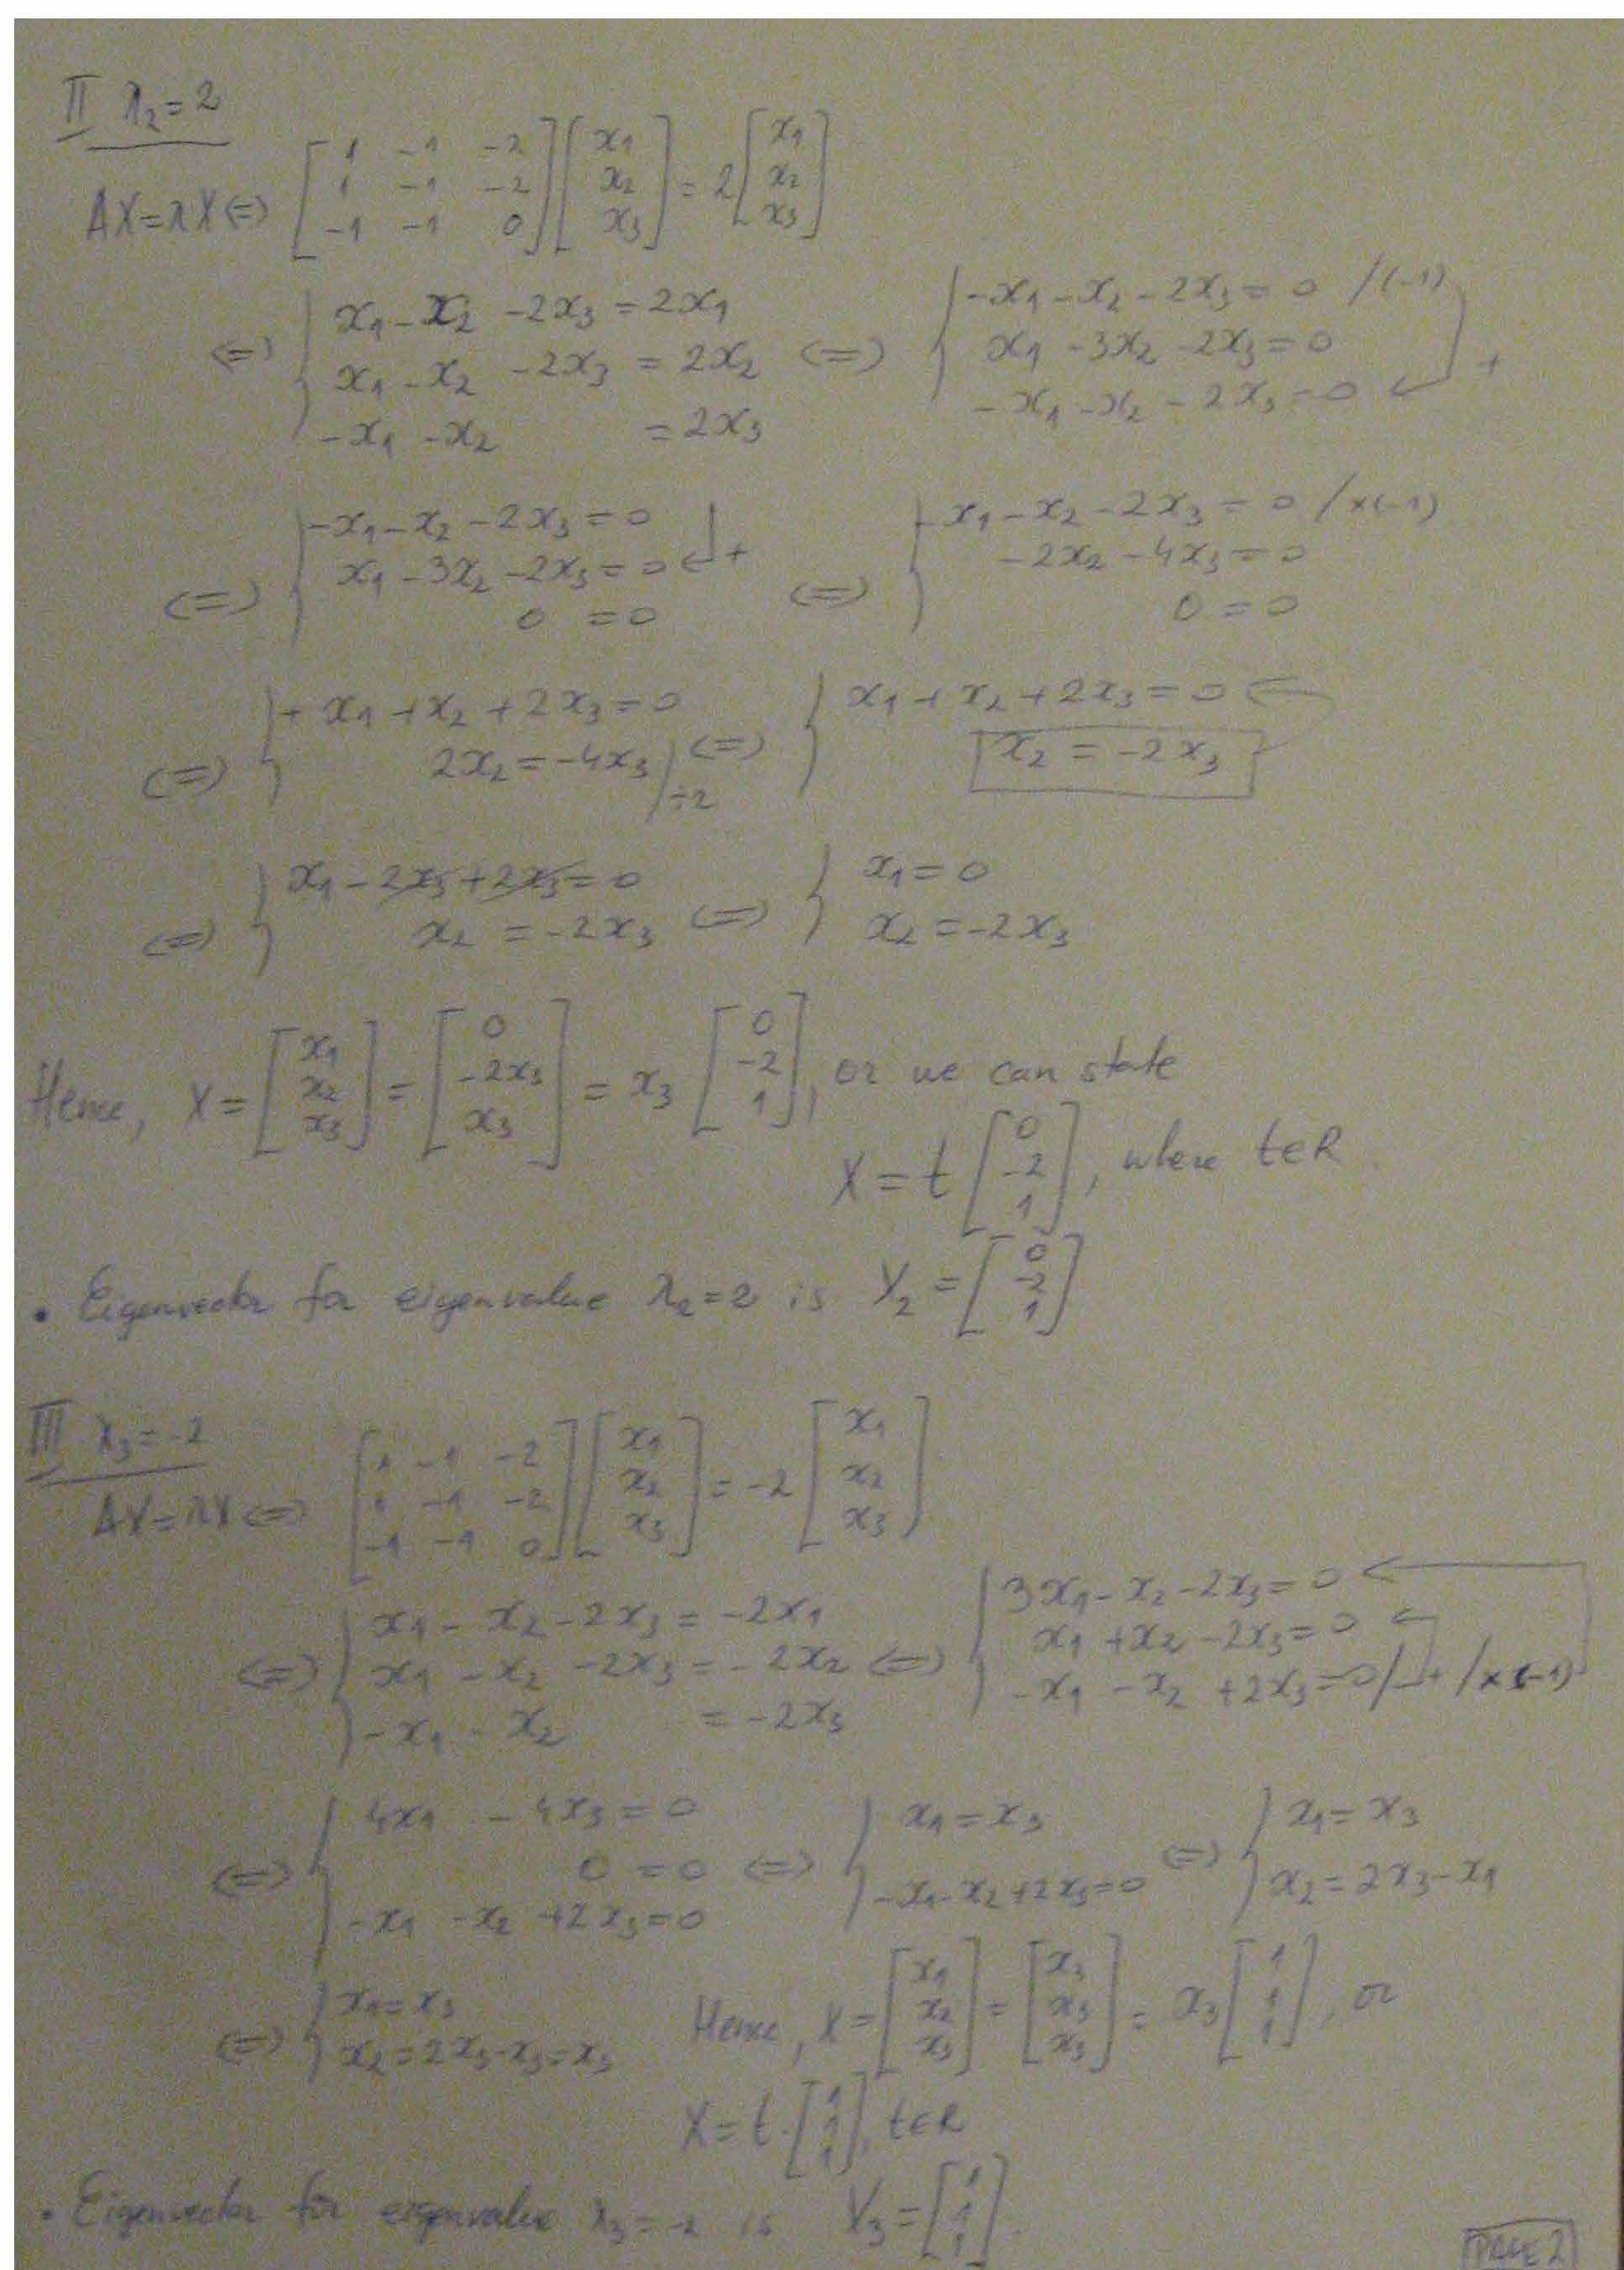 II λ₂=2
AX=λX⇔ [1 -1 -2; 1 -1 -2; -1 -1 0] [x₁; x₂; x₃] = 2 [x₁; x₂; x₃]
⇔ { x₁-x₂-2x₃=2x₁
x₁-x₂-2x₃=2x₂
-x₁-x₂=2x₃
⇔ { -x₁-x₂-2x₃=0 /(-1)
x₁-3x₂-2x₃=0
-x₁-x₂-2x₃=0 ↵ +
⇔ { -x₁-x₂-2x₃=0
x₁-3x₂-2x₃=0 ↵+
0=0
⇔ { -x₁-x₂-2x₃=0 /×(-1)
-2x₂-4x₃=0
0=0
⇔ { +x₁+x₂+2x₃=0
2x₂=-4x₃ /÷2
⇔ { x₁+x₂+2x₃=0 ←
x₂=-2x₃
⇔ { x₁-2x₃+2x₃=0
x₂=-2x₃
⇔ { x₁=0
x₂=-2x₃
Hence, X=[x₁; x₂; x₃]=[0; -2x₃; x₃]=x₃[0; -2; 1], or we can state
X=t[0; -2; 1], where t∈R.
• Eigenvector for eigenvalue λ₂=2 is V₂=[0; -2; 1]
III λ₃=-2
AX=λX⇔ [1 -1 -2; 1 -1 -2; -1 -1 0] [x₁; x₂; x₃] = -2 [x₁; x₂; x₃]
⇔ { x₁-x₂-2x₃=-2x₁
x₁-x₂-2x₃=-2x₂
-x₁-x₂=-2x₃
⇔ { 3x₁-x₂-2x₃=0 ←
x₁+x₂-2x₃=0 ←
-x₁-x₂+2x₃=0 /+ /×(-1)
⇔ { 4x₁-4x₃=0
0=0
-x₁-x₂+2x₃=0
⇔ { x₁=x₃
-x₁-x₂+2x₃=0
⇔ { x₁=x₃
x₂=2x₃-x₁
⇔ { x₁=x₃
x₂=2x₃-x₃=x₃
Hence, X=[x₁; x₂; x₃]=[x₃; x₃; x₃]=x₃[1; 1; 1], or
X=t·[1; 1; 1], t∈R
• Eigenvector for eigenvalue λ₃=-2 is V₃=[1; 1; 1].
PAGE 2